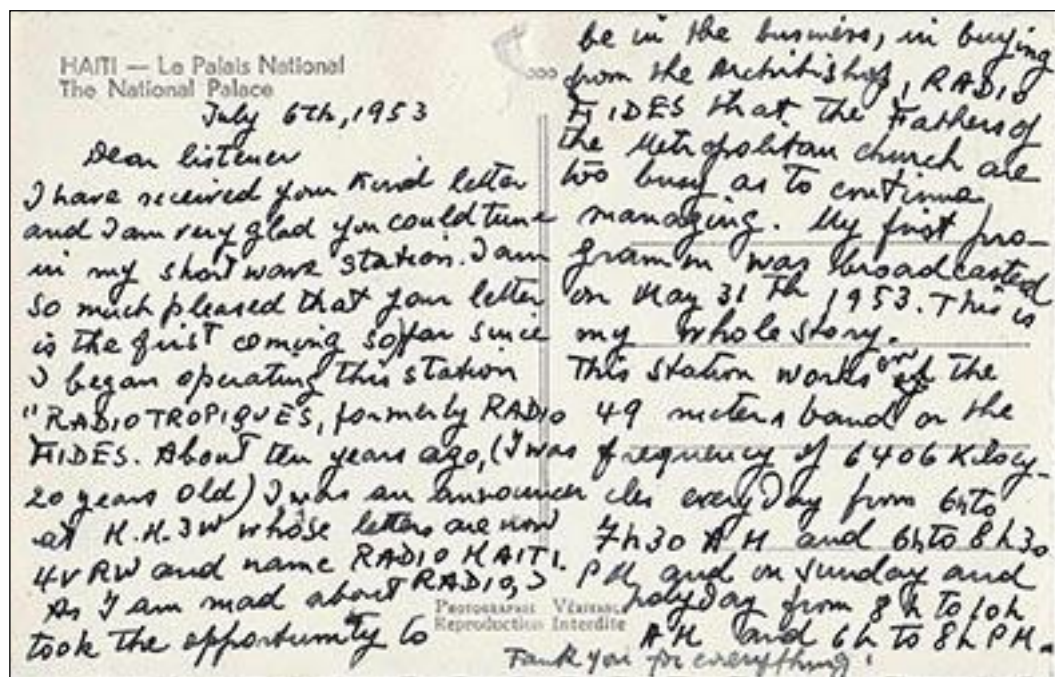 HAITI — Le Palais National
The National Palace
July 6th, 1953
Dear listener
I have received your Kind letter
and I am very glad you could tune
in my short wave station. I am
so much pleased that your letter
is the first coming so far since
I began operating this station
"RADIO TROPIQUES, formerly RADIO
FIDES. About ten years ago, (I was
20 years old) I was an announcer
at H.H.3W whose letters are now
4VRW and name RADIO HAITI.
As I am mad about RADIO, I
took the opportunity to
be in the business, in buying
from the Archibishop, RADIO
FIDES that the Fathers of
the Metropolitan church are
too busy as to continue
managing. My first pro-
gramm was broadcasted
on May 31th, 1953. This is
my whole story.
This station works on the
49 meters band or the
frequency of 6406 Kilocy-
cles everyday from 6h to
7h30 AM and 6h to 8h30
PM, and on sunday and
holyday from 8h to 10h
AM and 6h to 8h PM.
Photographie Véritable
Reproduction Interdite
Tank you for everything!